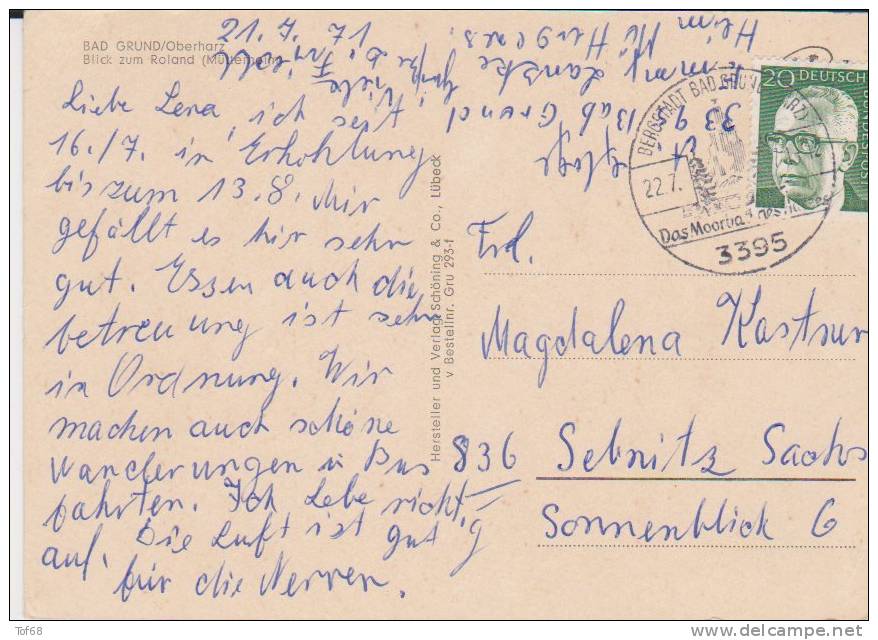 BAD GRUND/Oberharz
Blick zum Roland (Mütterheim)
21.7.71
Liebe Lena, ich seit
16./7. in Erhohlung
bis zum 13.8. Mir
gefällt es hir sehr
gut. Essen auch die
betreuung ist sehr
in Ordnung. Wir
machen auch schöne
Wanderungen in Bus
fahrten. Ich Lebe richtig
auf. Die Luft ist gut
für die Nerven.
Viele Grüße
3395 Bad Grund
Hersteller und Verlag Schöning & Co., Lübeck
Bestellnr. Gru 293-f
20 DEUTSCHE BUNDESPOST
BERGSTADT BAD GRUND (HARZ)
22.7.
Das Moorbad des Harzes
3395
Frl.
Magdalena Kastsur
836 Sebnitz Sachs
Sonnenblick 6
Tof68
delcampe.net